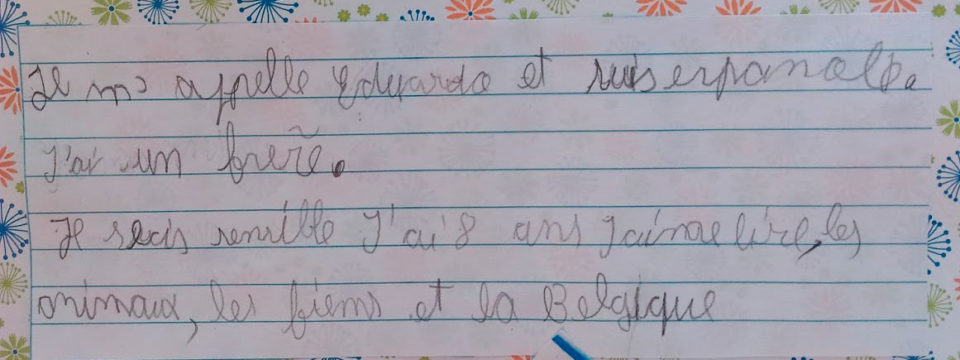 Je m'appelle Eduardo et suis espanole.
J'ai un frère.
Je suis sensible J'ai 8 ans J'aime lire, les
animaux, les et la Belgique